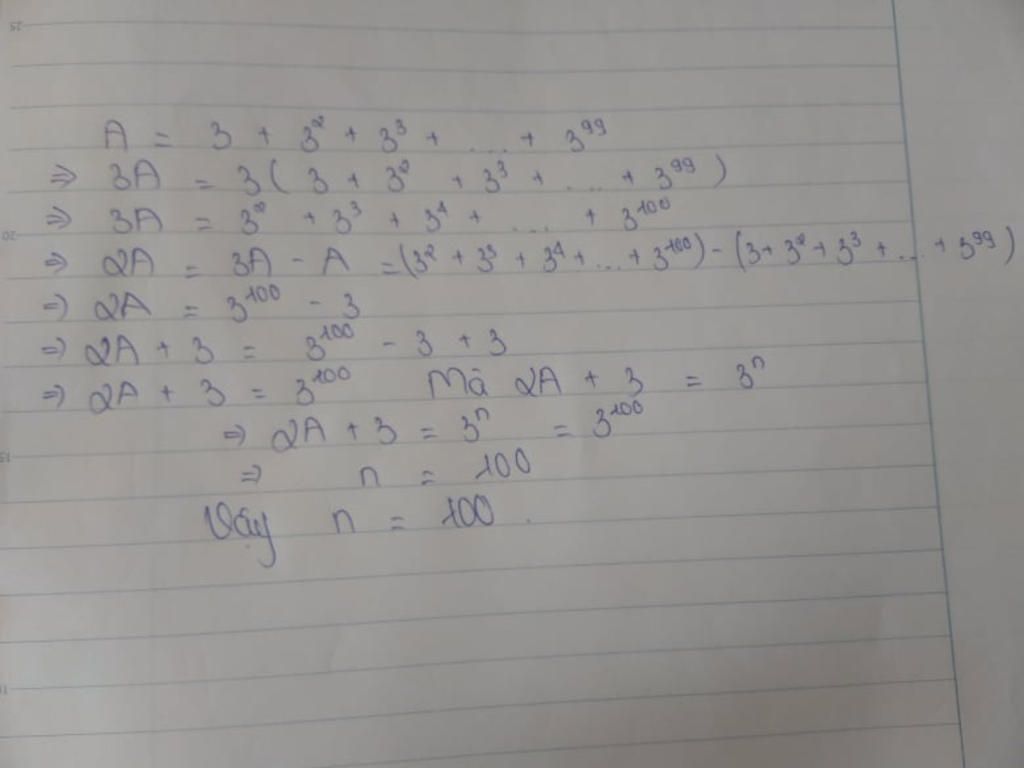 A = 3 + 3² + 3³ + ... + 3⁹⁹
⇒ 3A = 3( 3 + 3² + 3³ + ... + 3⁹⁹ )
⇒ 3A = 3² + 3³ + 3⁴ + ... + 3¹⁰⁰
⇒ 2A = 3A - A = (3² + 3³ + 3⁴ + ... + 3¹⁰⁰) - (3 + 3² + 3³ + ... + 3⁹⁹)
⇒ 2A = 3¹⁰⁰ - 3
⇒ 2A + 3 = 3¹⁰⁰ - 3 + 3
⇒ 2A + 3 = 3¹⁰⁰ Mà 2A + 3 = 3ⁿ
⇒ 2A + 3 = 3ⁿ = 3¹⁰⁰
⇒ n = 100
Vậy n = 100.